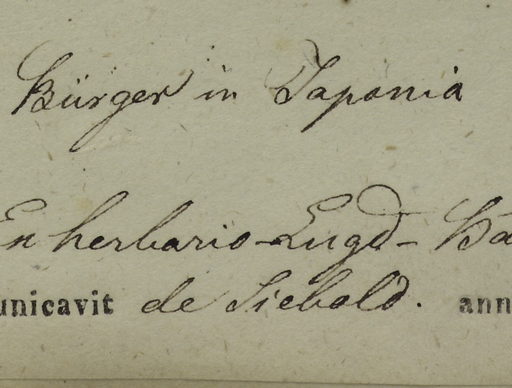 Bürger in Japonia
En herbario-Lugd-Ba
unicavit de Siebold. ann